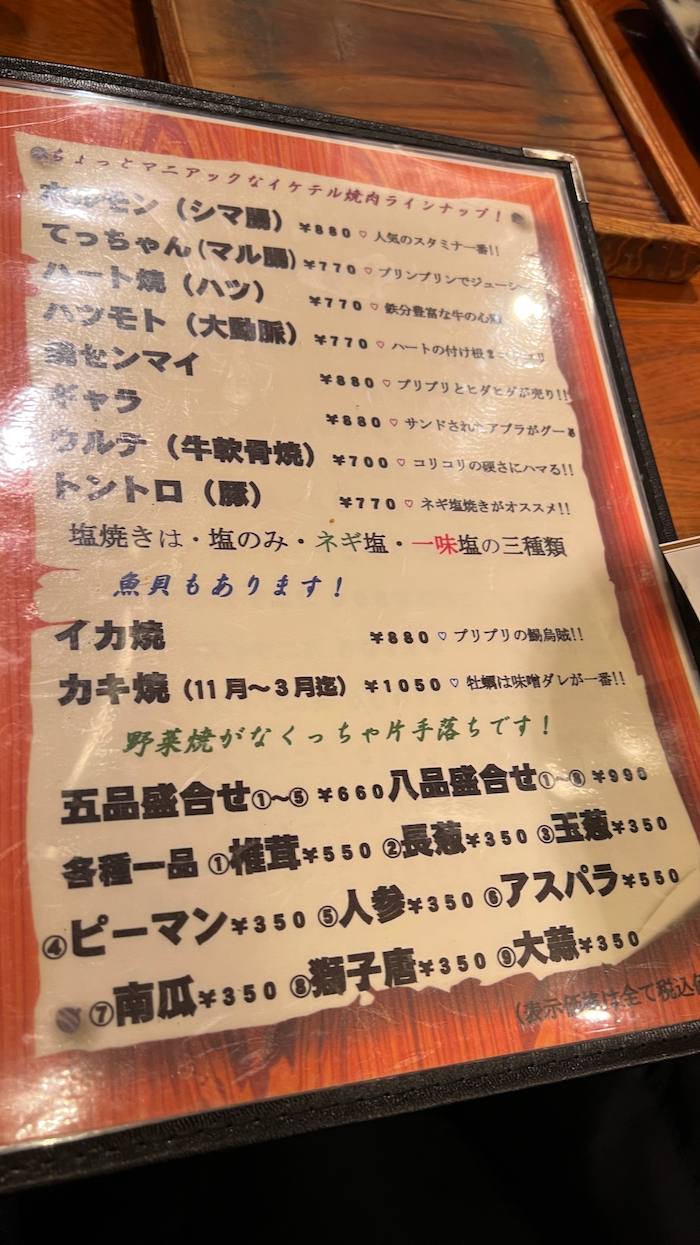 ちょっとマニアックなイケテル焼肉ラインナップ！
ホルモン（シマ腸） ¥880 ♡ 人気のスタミナ一番!!
てっちゃん(マル腸) ¥770 ♡ プリンプリンでジューシー
ハート焼（ハツ） ¥770 ♡ 鉄分豊富な牛の心臓
ハツモト（大動脈） ¥770 ♡ ハートの付け根
センマイ ¥880 ♡ プリプリとヒダヒダが売り!!
ギャラ ¥880 ♡ サンドされたアブラがグー
ウルテ（牛軟骨焼） ¥700 ♡ コリコリの硬さにハマる!!
トントロ（豚） ¥770 ♡ ネギ塩焼きがオススメ!!
塩焼きは・塩のみ・ネギ塩・一味塩の三種類
魚貝もあります！
イカ焼 ¥880 ♡ プリプリの鯣烏賊!!
カキ焼（11月〜3月迄） ¥1050 ♡ 牡蠣は味噌ダレが一番!!
野菜焼がなくっちゃ片手落ちです！
五品盛合せ①〜⑤ ¥660 八品盛合せ①〜⑧ ¥990
各種一品 ①椎茸¥550 ②長葱¥350 ③玉葱¥350
④ピーマン¥350 ⑤人参¥350 ⑥アスパラ¥550
⑦南瓜¥350 ⑧獅子唐¥350 ⑨大蒜¥350
（表示価格は全て税込